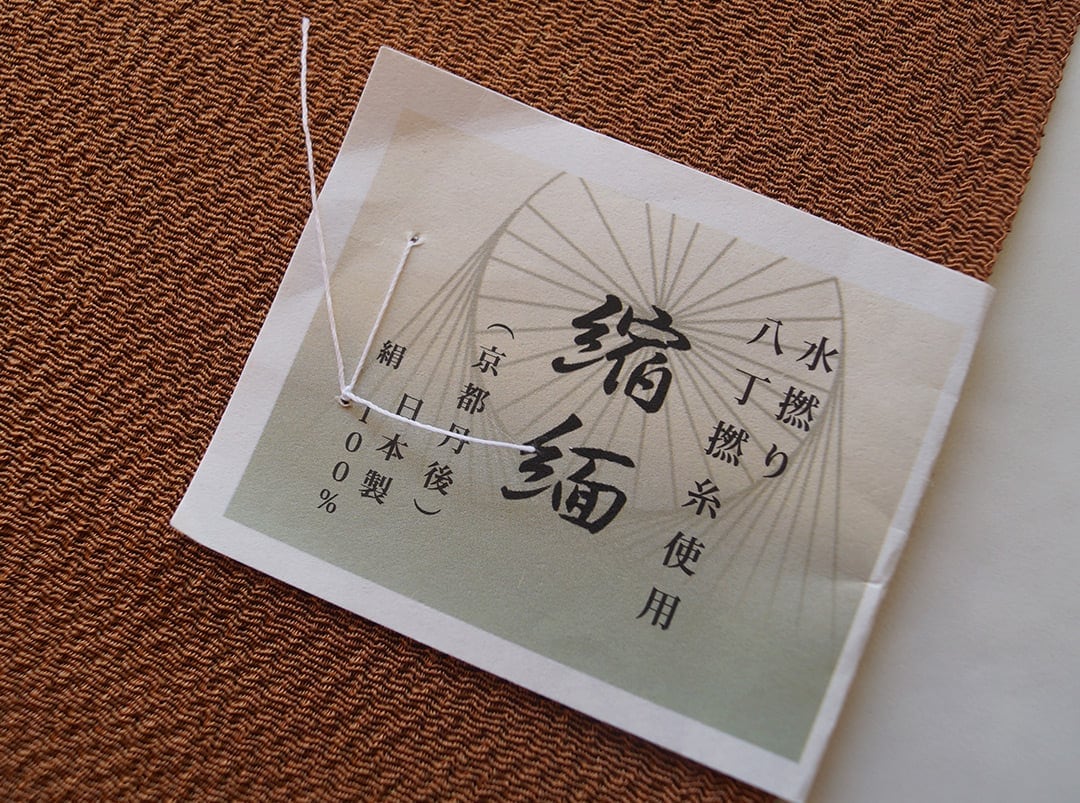 水撚り
八丁撚糸使用
縮緬
（京都丹後）
日本製
絹100%